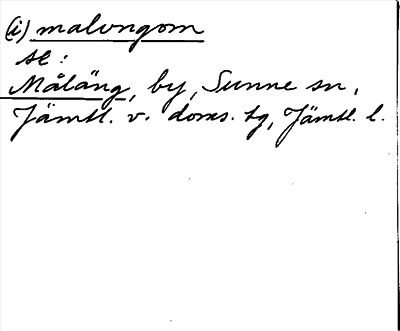 (i) malongom
se:
Målång, by, Sunne sn,
Jämtl. v. doms. tg, Jämtl. l.